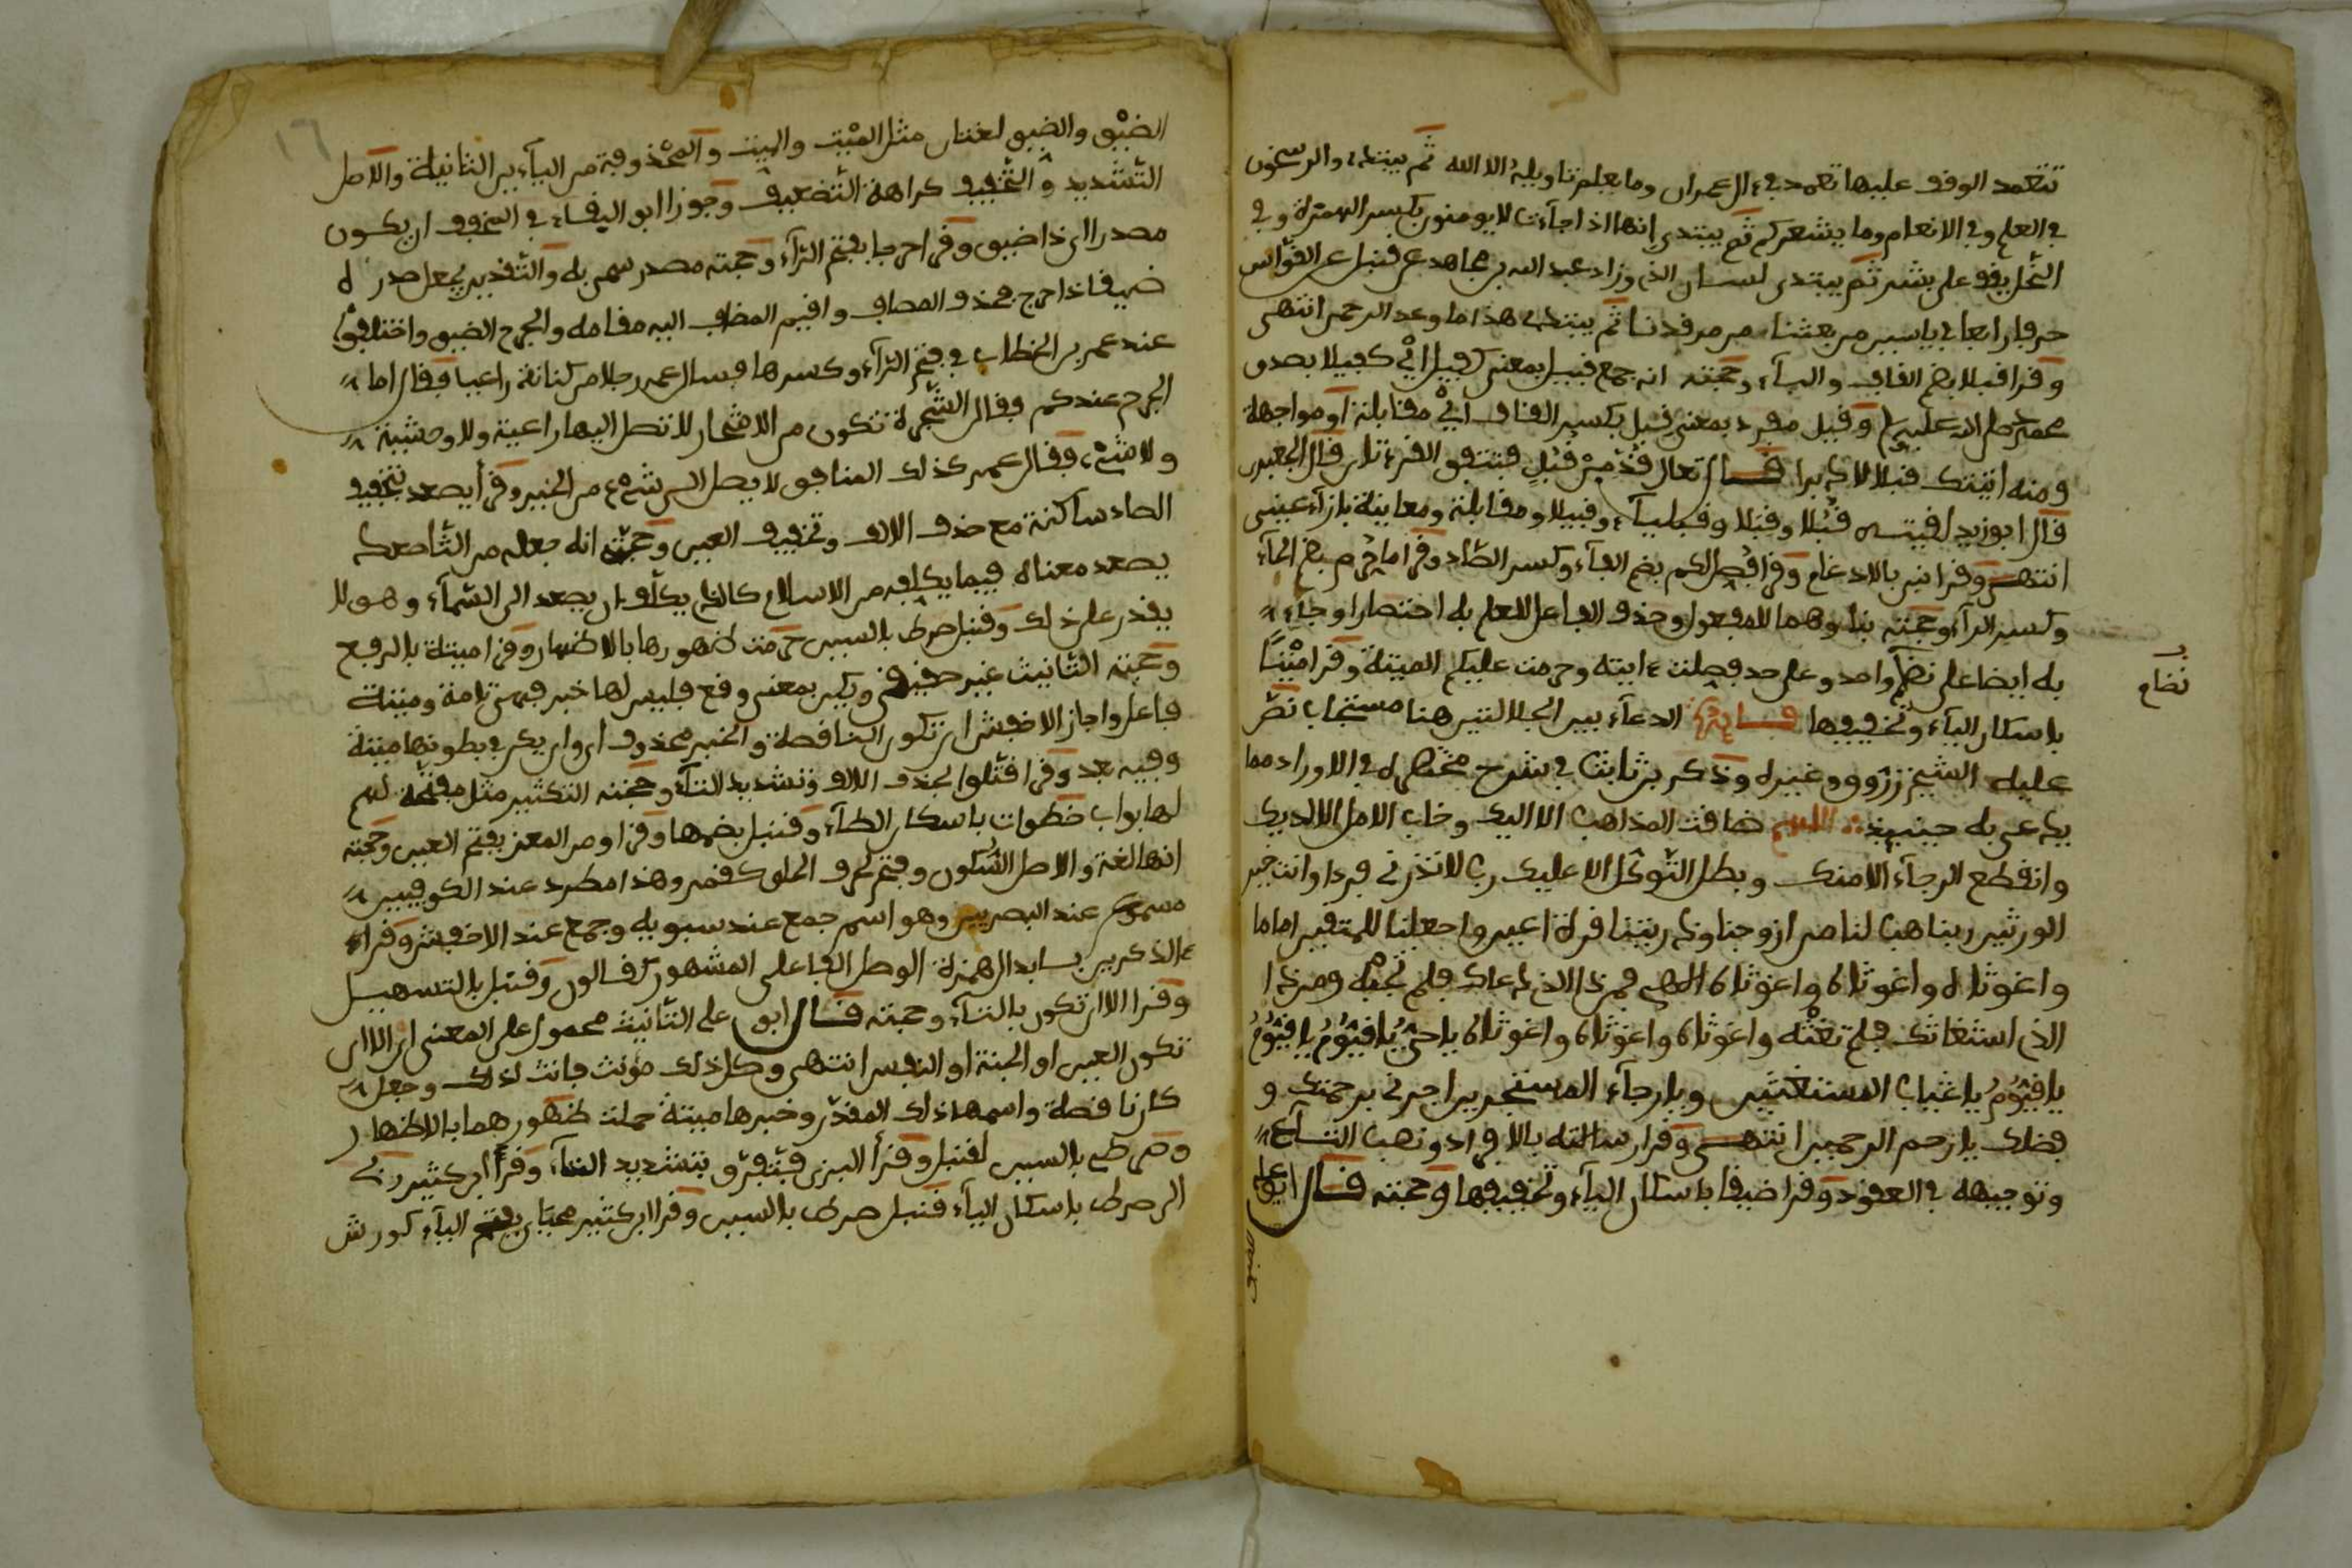 تتعمد الوقف عليها تعمد في ءال عمران وما يعلم تاويله الا الله ثم يبتدئ والرسخون
في العلم وفي الانعام وما يشعركم ثم يبتدي إنها اذا جآءت لا يومنون بكسر الهمزة وفي
النحل يقف على بشر ثم يبتدي لسان الذي وزاد عبد الله بن مجاهد عن قنبل عن القواس
حرفا رابعا في ياسين من بعثنا من مرقدنا ثم يبتدئ هذا ما وعد الرحمن انتهى
وقرا قبلا بضم القاف والبآء وحجته انه جمع قبيل بمعنى كفيل اي كفيلا بصدق
محمد صلى الله عليه وقيل مفرد بمعنى قبل بكسر القاف اي مقابلة او مواجهة
ومنه اتيتك قبلا لا دبرا قال تعالى قد من قبل فتتفق القرءتان قال الجعبري
قال ابوزيد لقيته قبلا وقبلا وقبليآ وقبيلا ومقابلة ومعاينة بازآء عيني
انتهى وقرا نبي بالادغام وقرا فصل لكم بضم الفآء وكسر الصاد وقرا ما حرم بضم الحآء
وكسر الرآء وحجته بناوهما للمفعول وحذف الفاعل للعلم به اختصارا وجآء
به ايضا على نظم واحد وعلى حد فصلت ءايته وحرمت عليكم الميتة وقرا ميتا
باسكان اليآء وتخفيفها فايدة الدعآء بين الجلالتين هنا مستجاب نص
نضاع
عليه الشيخ زروق وغيره وذكر بن ثابت في شرح مختصره في الاوراد مما
يدعى به حينئذ اللهم ضاقت المذاهب الا اليك وخاب الامل الا لديك
وانقطع الرجآء الا منك وبطل التوكل الا عليك رب لا تذرني فردا وانت خير
الورثين ربنا هب لنا من ازوجنا وذريتنا قرة اعين واجعلنا للمتقين اماما
واغوثاه واغوثاه واغوثاه الهي فمن ذا الذي دعاك فلم تجبه ومن ذا
الذي استغاثك فلم تغثه واغوثاه واغوثاه واغوثاه يا حي يا قيوم يا قيوم
يا قيوم يا غياث المستغثين ويا رجآء المستجرين اجرني برحمتك و
فضلك يا رحم الرحمين انتهى وقرا رسالته بالافراد ونصب التآء
وتوجيهه في العقود وقرا ضيقا باسكان اليآء وتخفيفها وحجته قال ابو علي
الضيق
١٦
الضيق والضيق لغتان مثل الميت والميت والمحذوفة من اليآءين الثانية والاصل
التشديد والتخفيف كراهة التضعيف وجوز ابو البقاء في المخفف ان يكون
مصدرا اي ذا ضيق وقرا حرجا بفتح الرآء وحجته مصدر سمي به والتقدير يجعل صدره
ضيقا ذا حرج فحذف المضاف واقيم المضاف اليه مقامه والحرج الضيق واختلفوا
عند عمر بن الخطاب في فتح الرآء وكسرها فسال عمر رجلا من كنانة راعيا فقال ما
الحرج عندكم فقال الشجرة تكون من الاشجار لا تصل اليها راعية ولا وحشية
ولا شيء فقال عمر كذلك المنافق لا يصل الى شيء من الخير وقرأ يصعد بتخفيف
الصاد ساكنة مع حذف الالف وتخفيف العين وحجته انه جعله من الثا صعد كا
يصعد معناه فيما يكلفه من الاسلام كالذي يكلف ان يصعد الى السمآء وهو لا
يقدر على ذلك وقنبل صرط بالسين حرمت ظهورها بالاظهار وقرا ميتة بالرفع
وحجته التانيث غير حقيقي ويكن بمعنى وقع فليس لها خبر فهي تامة وميتة
فاعل واجاز الاخفش ان تكون الناقصة والخبر محذوف اي وان يكن في بطونها ميتة
وفيه بعد وقرا قتلوا بحذف الالف وتشديد التآء وحجته التكثير مثل مفتحة لهم
لها بواب خطوات باسكان الطآء وقنبل بضمها وقرا ومن المعز بفتح العين وحجته
انها لغة والاصل السكون وفتح لحرف الحلق كنهر وهذا مطرد عند الكوفيين
مسموع عند البصريين وهو اسم جمع عند سبويه وجمع عند الاخفش وقراء
ءالذكرين بابدال همزة الوصل الفا على المشهور كقالون وقنبل بالتسهيل
وقرا الا ان تكون بالتآء وحجته قال ابو علي التانيث محمول على المعنى اي الا ان
تكون العين او الجنة او النفس انتهى وكل ذلك مؤنث فانث لذلك وجعل
كان ناقصة واسمها ذلك المقدر وخبرها ميتة حملت ظهورهما بالاظهار
وصرطي بالسين لقنبل وقرأ البزي فتفرق بتشديد التآء وقرأ ابن كثير ربي
الى صرط باسكان اليآء قنبل صرط بالسين وقرا ابن كثير محياي بفتح اليآء كورش